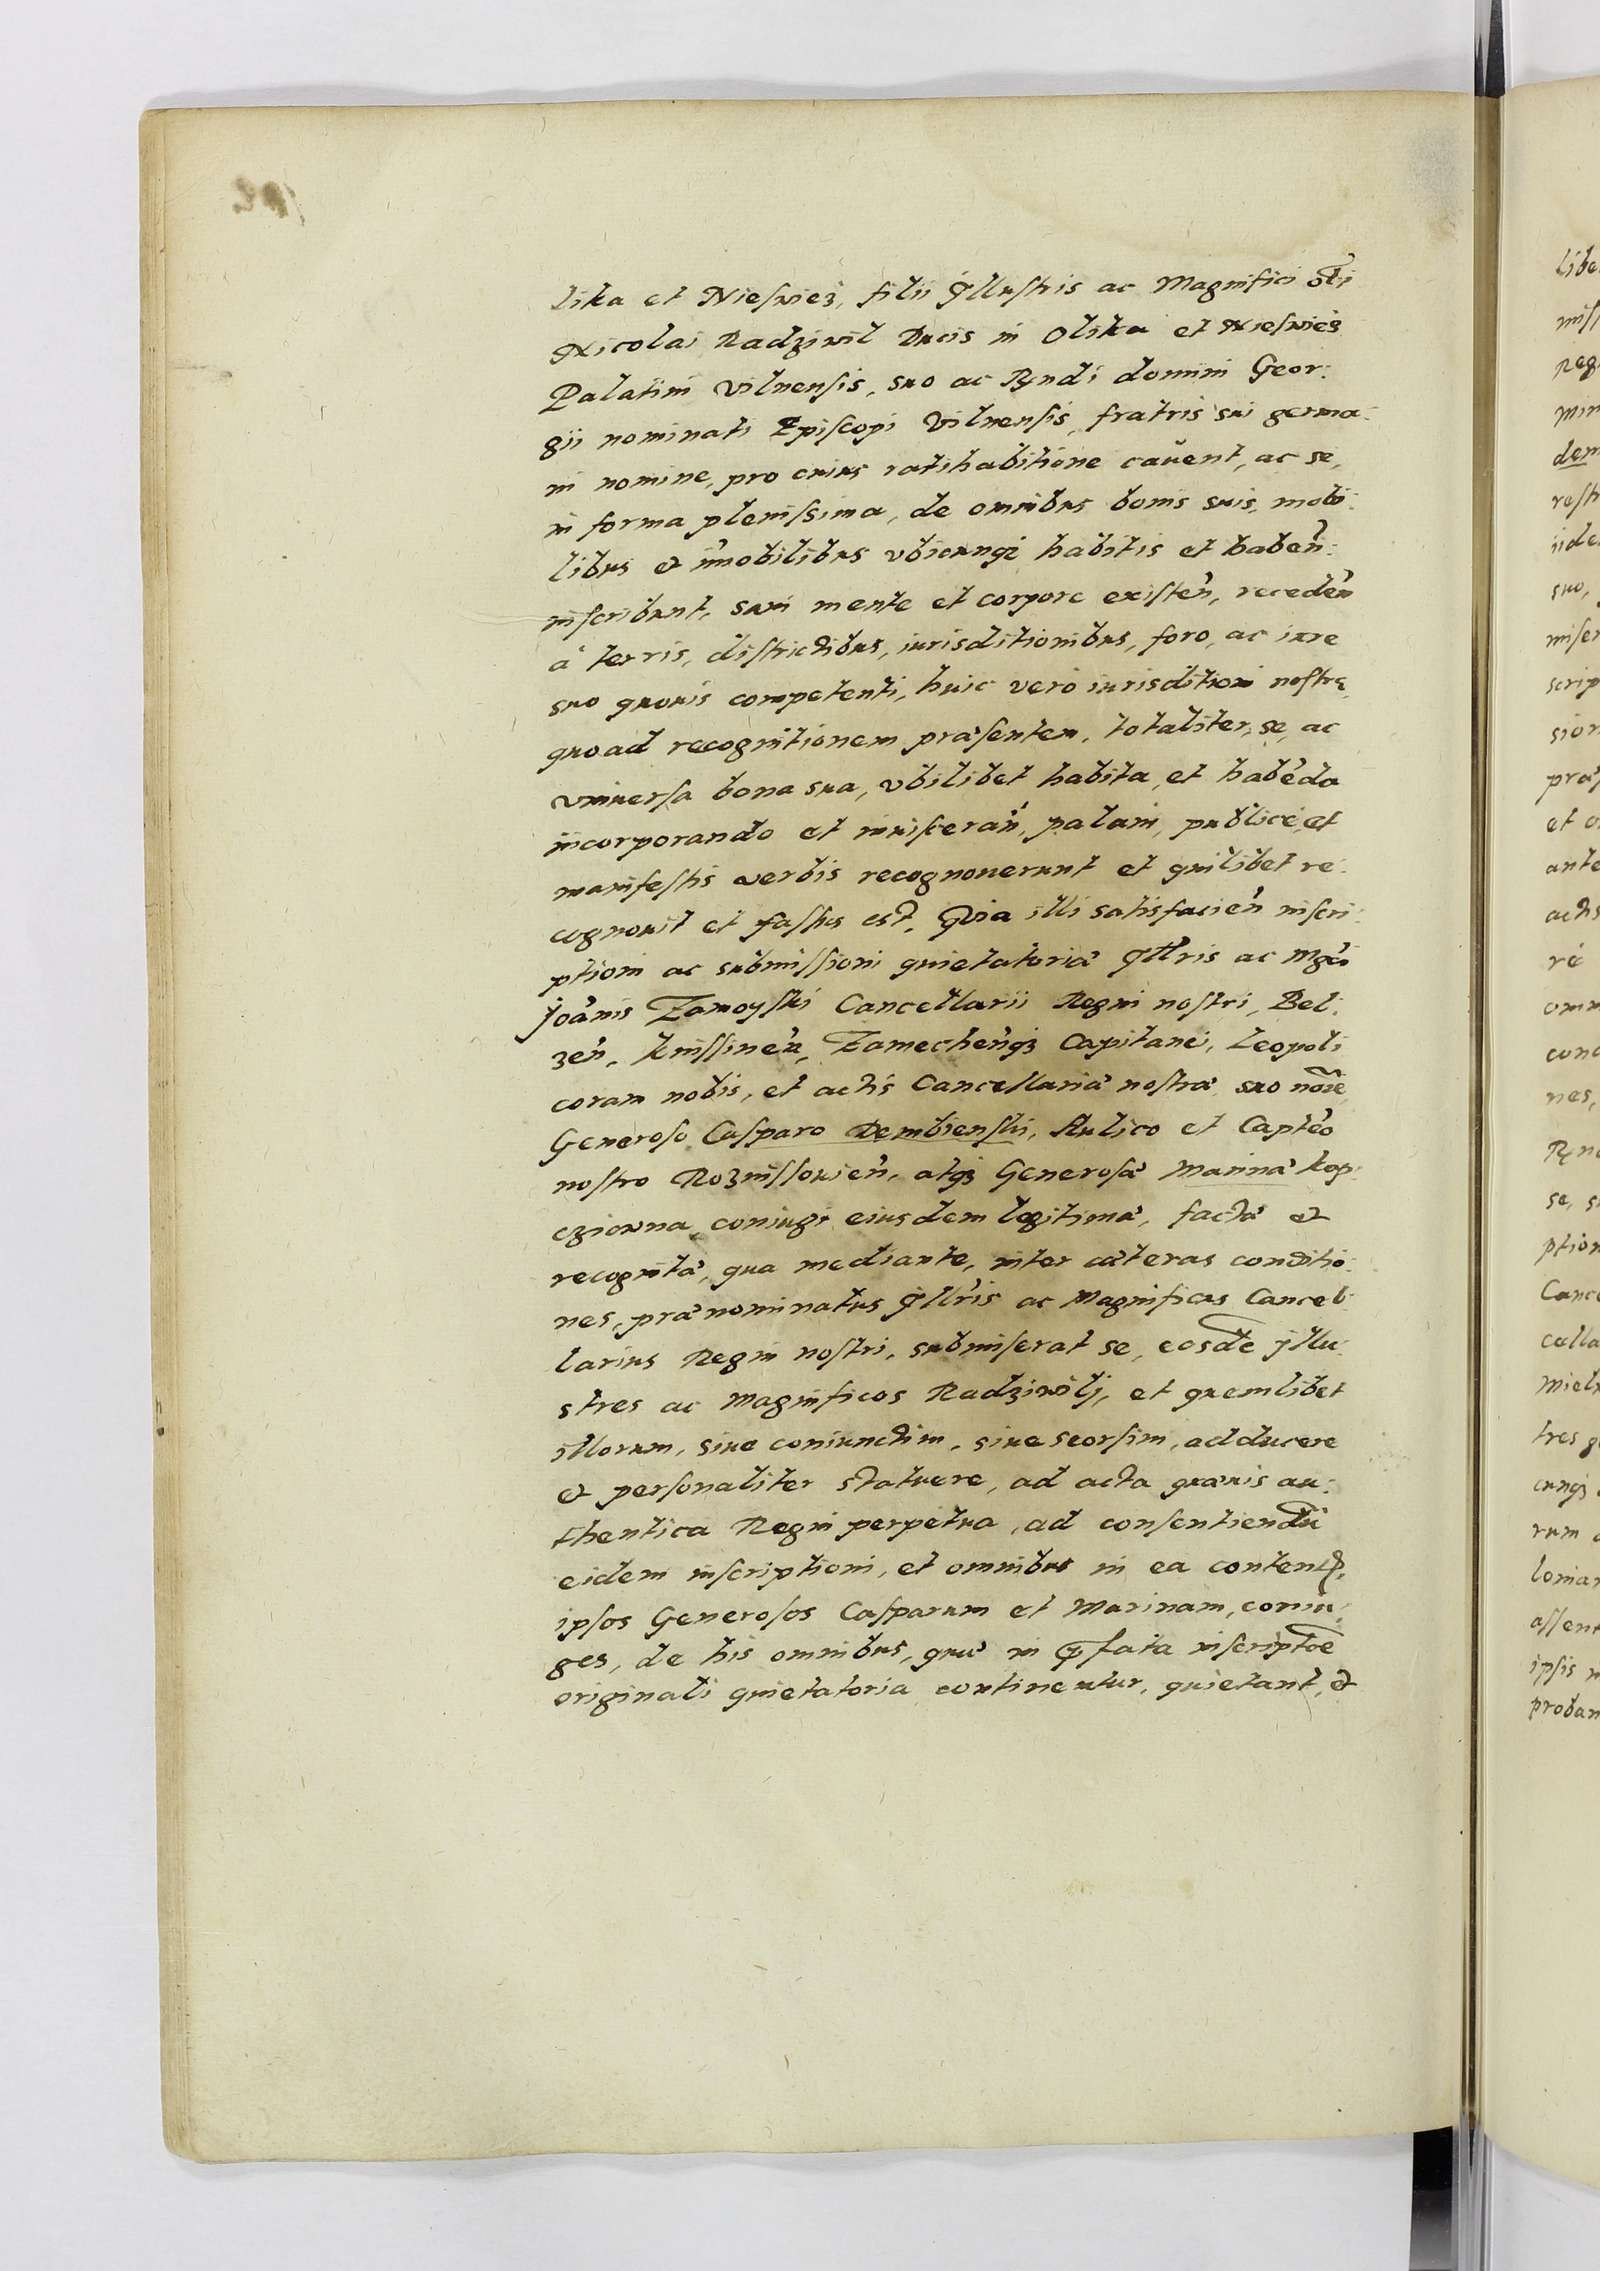 lika et Niesviez, filii Jllustris ac Magnifici oli
Nicolai Radziwil Ducis in Olika et Niesviez
Palatini Vilnensis, suo ac Rndi domini Geor:
gii nominati Episcopi Vilnensis, fratris sui germa:
ni nomine, pro cuius ratihabitione cavent, ac se,
in forma plenissima, de omnibus bonis suis, mobi:
libus et imobilibus vbicunqz habitis et haben:
inscribunt, sani mente et corpore existen, receden
a terris, districtibus, iurisditionibus, foro, ac iure
suo quouis competenti, huic vero iurisditioni nostrę,
quoad recognitionem præsentem, totaliter, se, ac
vniuersa bona sua, vbilibet habita, et habēda
incorporando et inuisceran, palam, publice, et
manifestis verbis recognouerunt et quilibet re:
cognouit et fassus est, Quia illi satisfacien inscri:
ptioni ac submissioni quietatoriæ Jllris ac Mgci
Joānis Zamoyski Cancellarii Regni nostri, Bel:
zen, knissinen, Zamechenqz Capitanei, Leopoli
coram nobis, et actis Cancellariæ nostræ suo noīe
Generoso Casparo Dembienski, Aulico et Capteo
nostro Roznissouien, atqz Generosæ Marinæ kop:
cziowna, coniugi eiusdem legitimæ, factæ et
recognitæ, qua mediante, inter cæteras conditio:
nes, prænominatus Jllris ac Magnificus Cancel:
larius Regni nostri, submiserat se, eosdē Jllu:
stres ac Magnificos Radziwilj, et quemlibet
illorum, siue coniunctim, siue seorsim, adducere
et personaliter statuere, ad acta quæuis au:
thentica Regni perpetua, ad consentiendū
eidem inscriptioni, et omnibus in ea contentis,
ipsos Generosos Casparum et Marinam, coniu:
ges, de his omnibus, quæ in pfata inscriptōe
originali quietatoria continentur, quietant, et